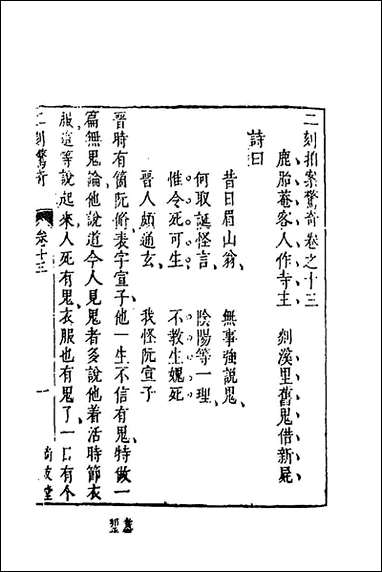 二刻拍案驚奇卷之十三
鹿胎菴客人作寺主　剡溪里舊鬼借新屍
詩曰
昔日眉山翁　無事強說鬼
何取誕怪言　陰陽等一理
惟令死可生　不教生媿死
晉人頗通玄　我怪阮宣子
晉時有箇阮脩表字宣子他一生不信有鬼特做一
篇無鬼論他說道今人見鬼者多說他着活時節衣
服這等說起來人死有鬼衣服也有鬼了一日有个
二刻驚奇　卷十三　一　尚友堂